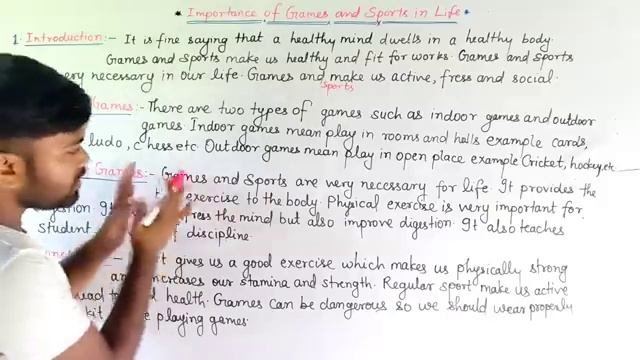 * Importance of Games and Sports in Life *
1. Introduction:- It is fine saying that a healthy mind dwells in a healthy body.
Games and Sports make us healthy and fit for works. Games and sports
very necessary in our life. Games and make us active, fress and social.
Sports
Games:- There are two types of games such as indoor games and outdoor
games. Indoor games mean play in rooms and halls example cards,
ludo, chess etc. Outdoor games mean play in open place example Cricket, hockey, etc
Games:- Games and Sports are very necessary for life. It provides the
exercise to the body. Physical exercise is very important for
digestion. It the mind but also improve digestion. It also teaches
student of discipline.
:- gives us a good exercise which makes us physically strong
and increases our stamina and strength. Regular sport make us active
health. Games can be dangerous so we should wear properly
kit playing games.